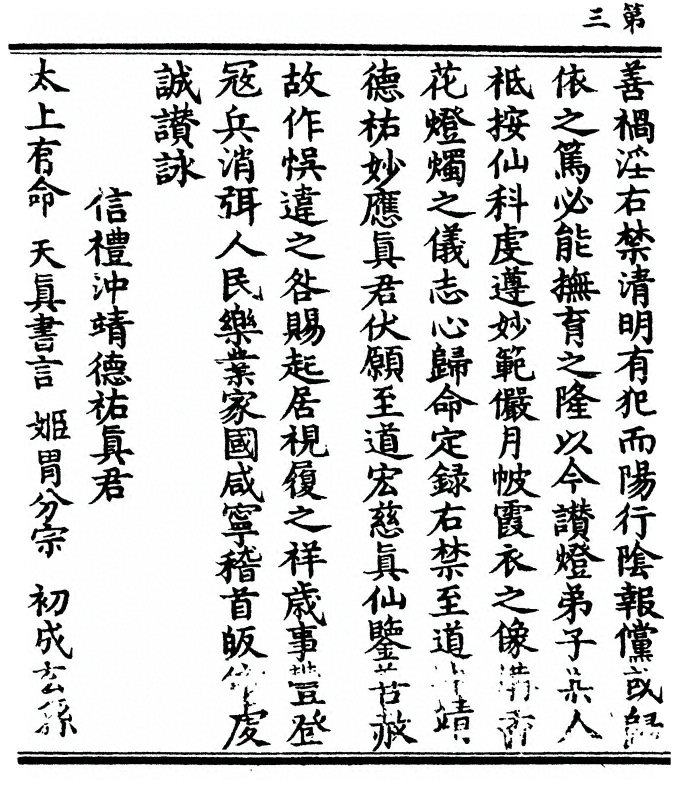 第三
善禍淫右禁清明有犯而陽行陰報儻或歸
依之篤必能撫育之隆以今讚燈弟子某人
祗按仙科虔遵妙範儼月帔霞衣之像
花燈燭之儀志心歸命定録右禁至道沖靖
德祐妙應眞君伏願至道宏慈眞仙鑒昔赦
故作悞違之咎賜起居視履之祥歳事豐登
冦兵消弭人民樂業家國咸寧稽首皈依虔
誠讃詠
信禮沖靖德祐眞君
太上有命 天眞書言 姬胄分宗 初成玄孫